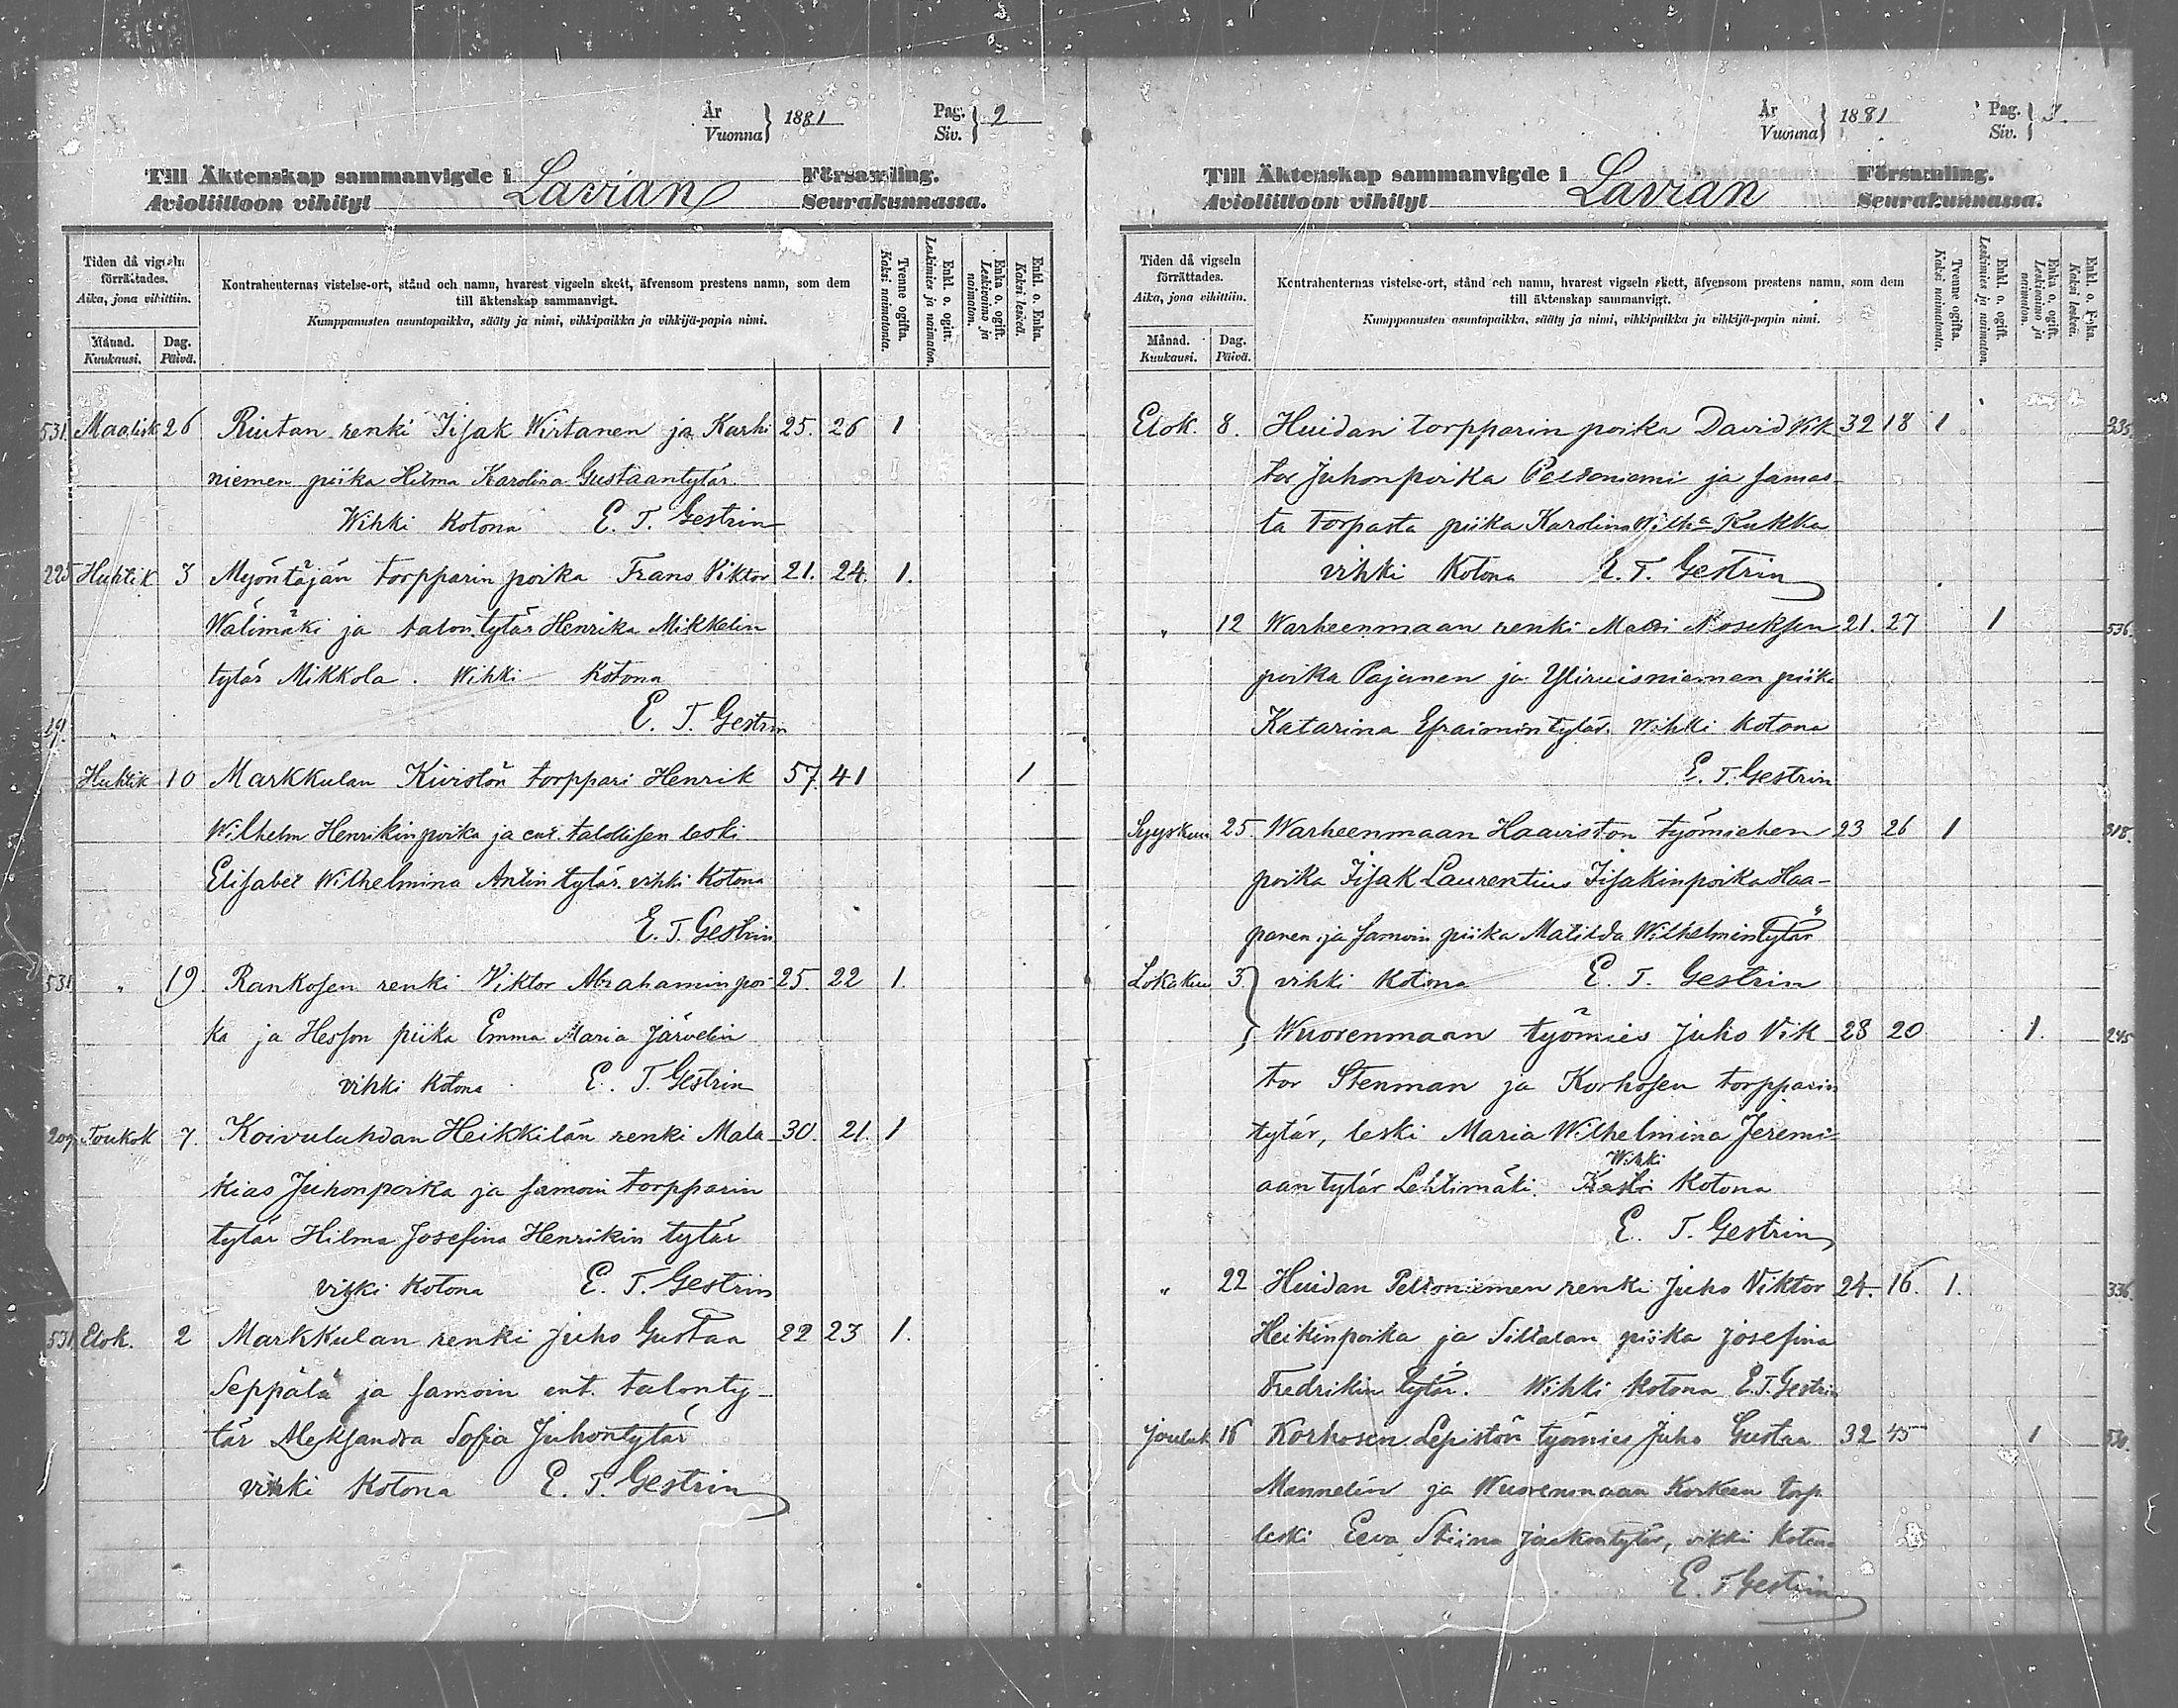 År
Vuonna } 1881
Pag.
Siv. } 2
Till Äktenskap sammanvigde i Lavian Församling.
Avioliittoon vihityt Seurakunnassa.
Tiden då vigseln förrättades.
Aika, jona vihittiin.
Månad.
Kuukausi.
Dag.
Päivä.
Kontrahenternas vistelse-ort, stånd och namn, hvarest vigseln skett, äfvensom prestens namn, som dem
till äktenskap sammanvigt.
Kumppanusten asuntopaikka, sääty ja nimi, vihkipaikka ja vihkijä-papin nimi.
Tvenne ogifta.
Kaksi naimatonta.
Enkl. o. ogift.
Leskimies ja naimaton.
Enka o. ogift.
Leskivaimo ja naimaton.
Enkl. o. Enka.
Kaksi leskeä.
531. Maalisk 26 Riutan renki Iisak Wirtanen ja Karhi 25. 26 1
niemen piika Hilma Karolina Gustaantytär
Wihki Kotona E. T. Gestrin
225 Huhtik 3 Myöntäjän torpparin poika Frans Viktor 21. 24. 1.
Wälimäki ja talon tytär Henrika Mikkelin
tytär Mikkola. Wihki Kotona
E. T. Gestrin
191. "
Huhtik 10 Markkulan Kivistön torppari Henrik 57. 41 1
Wilhelm Henrikinpoika ja ent. talollisen leski
Elisabet Wilhelmina Antin tytär. vihki Kotona
E. T. Gestrin
531 " 19. Rankosen renki Viktor Abrahamin poi- 25. 22 1.
ka ja Hesson piika Emma Maria Järvelin
vihki kotona E. T. Gestrin
209. Toukok 7. Koivuluhdan Heikkilän renki Mala 30. 21. 1
kias Juhonpoika ja samoin torpparin
tytär Hilma Josefina Henrikin tytär
vihki Kotona E. T. Gestrin
531 Elok. 2 Markkulan renki Juho Gustaa 22 23 1.
Seppälä ja samoin ent. talonty-
tär Aleksandra Sofia Juhontytär
vihki Kotona E. T. Gestrin
År
Vuonna } 1881
Pag.
Siv. } 3.
Till Äktenskap sammanvigde i Lavian Församling.
Avioliittoon vihityt Seurakunnassa.
Tiden då vigseln förrättades.
Aika, jona vihittiin.
Månad.
Kuukausi.
Dag.
Päivä.
Kontrahenternas vistelse-ort, stånd och namn, hvarest vigseln skett, äfvensom prestens namn, som dem
till äktenskap sammanvigt.
Kumppanusten asuntopaikka, sääty ja nimi, vihkipaikka ja vihkijä-papin nimi.
Tvenne ogifta.
Kaksi naimatonta.
Enkl. o. ogift.
Leskimies ja naimaton.
Enka o. ogift.
Leskivaimo ja naimaton.
Enkl. o. Enka.
Kaksi leskeä.
Elok. 8. Huidan torpparin poika David Vik 32 18 1 235.
tor Juhonpoika Peltoniemi ja samas
ta torpasta piika Karolina Wilh:a Kukka
vihki Kotona E. T. Gestrin
" 12 Warheenmaan renki Matti Moseksen 21. 27 1 536.
poika Pajunen ja Yliruisniemen piika
Katarina Efraimin tytär. Wihki kotona
E. T. Gestrin
Syyskuu 25. Warheenmaan Haaviston työmiehen 23 26 1 318.
poika Iisak Laurentius Iisakinpoika Haa-
panen ja samoin piika Matilda Wilhelmintytär
Lokakuu 3. vihki Kotona E. T. Gestrin
Wuorenmaan työmies Juho Vik 28 20 1. 245
tor Stenman ja Korhosen torpparin
tytär, leski Maria Wilhelmina Jeremi-
Wihki
aan tytär Lehtimäki. Kotona
E. T. Gestrin
" 22 Huidan Peltoniemen renki Juho Viktor 24. 16. 1. 336.
Heikinpoika ja Siltalan piika Josefina
Fredrikin tytär. Wihki kotona E. T. Gestrin
Jouluk 16 Korhosen Lepistön työmies Juho Gustaa 32 45 1 530.
Mannelin ja Wuorenmaan Korkeen torp.
leski Eeva Stiina Jaakontytär, vihki Kotona
E. T. Gestrin